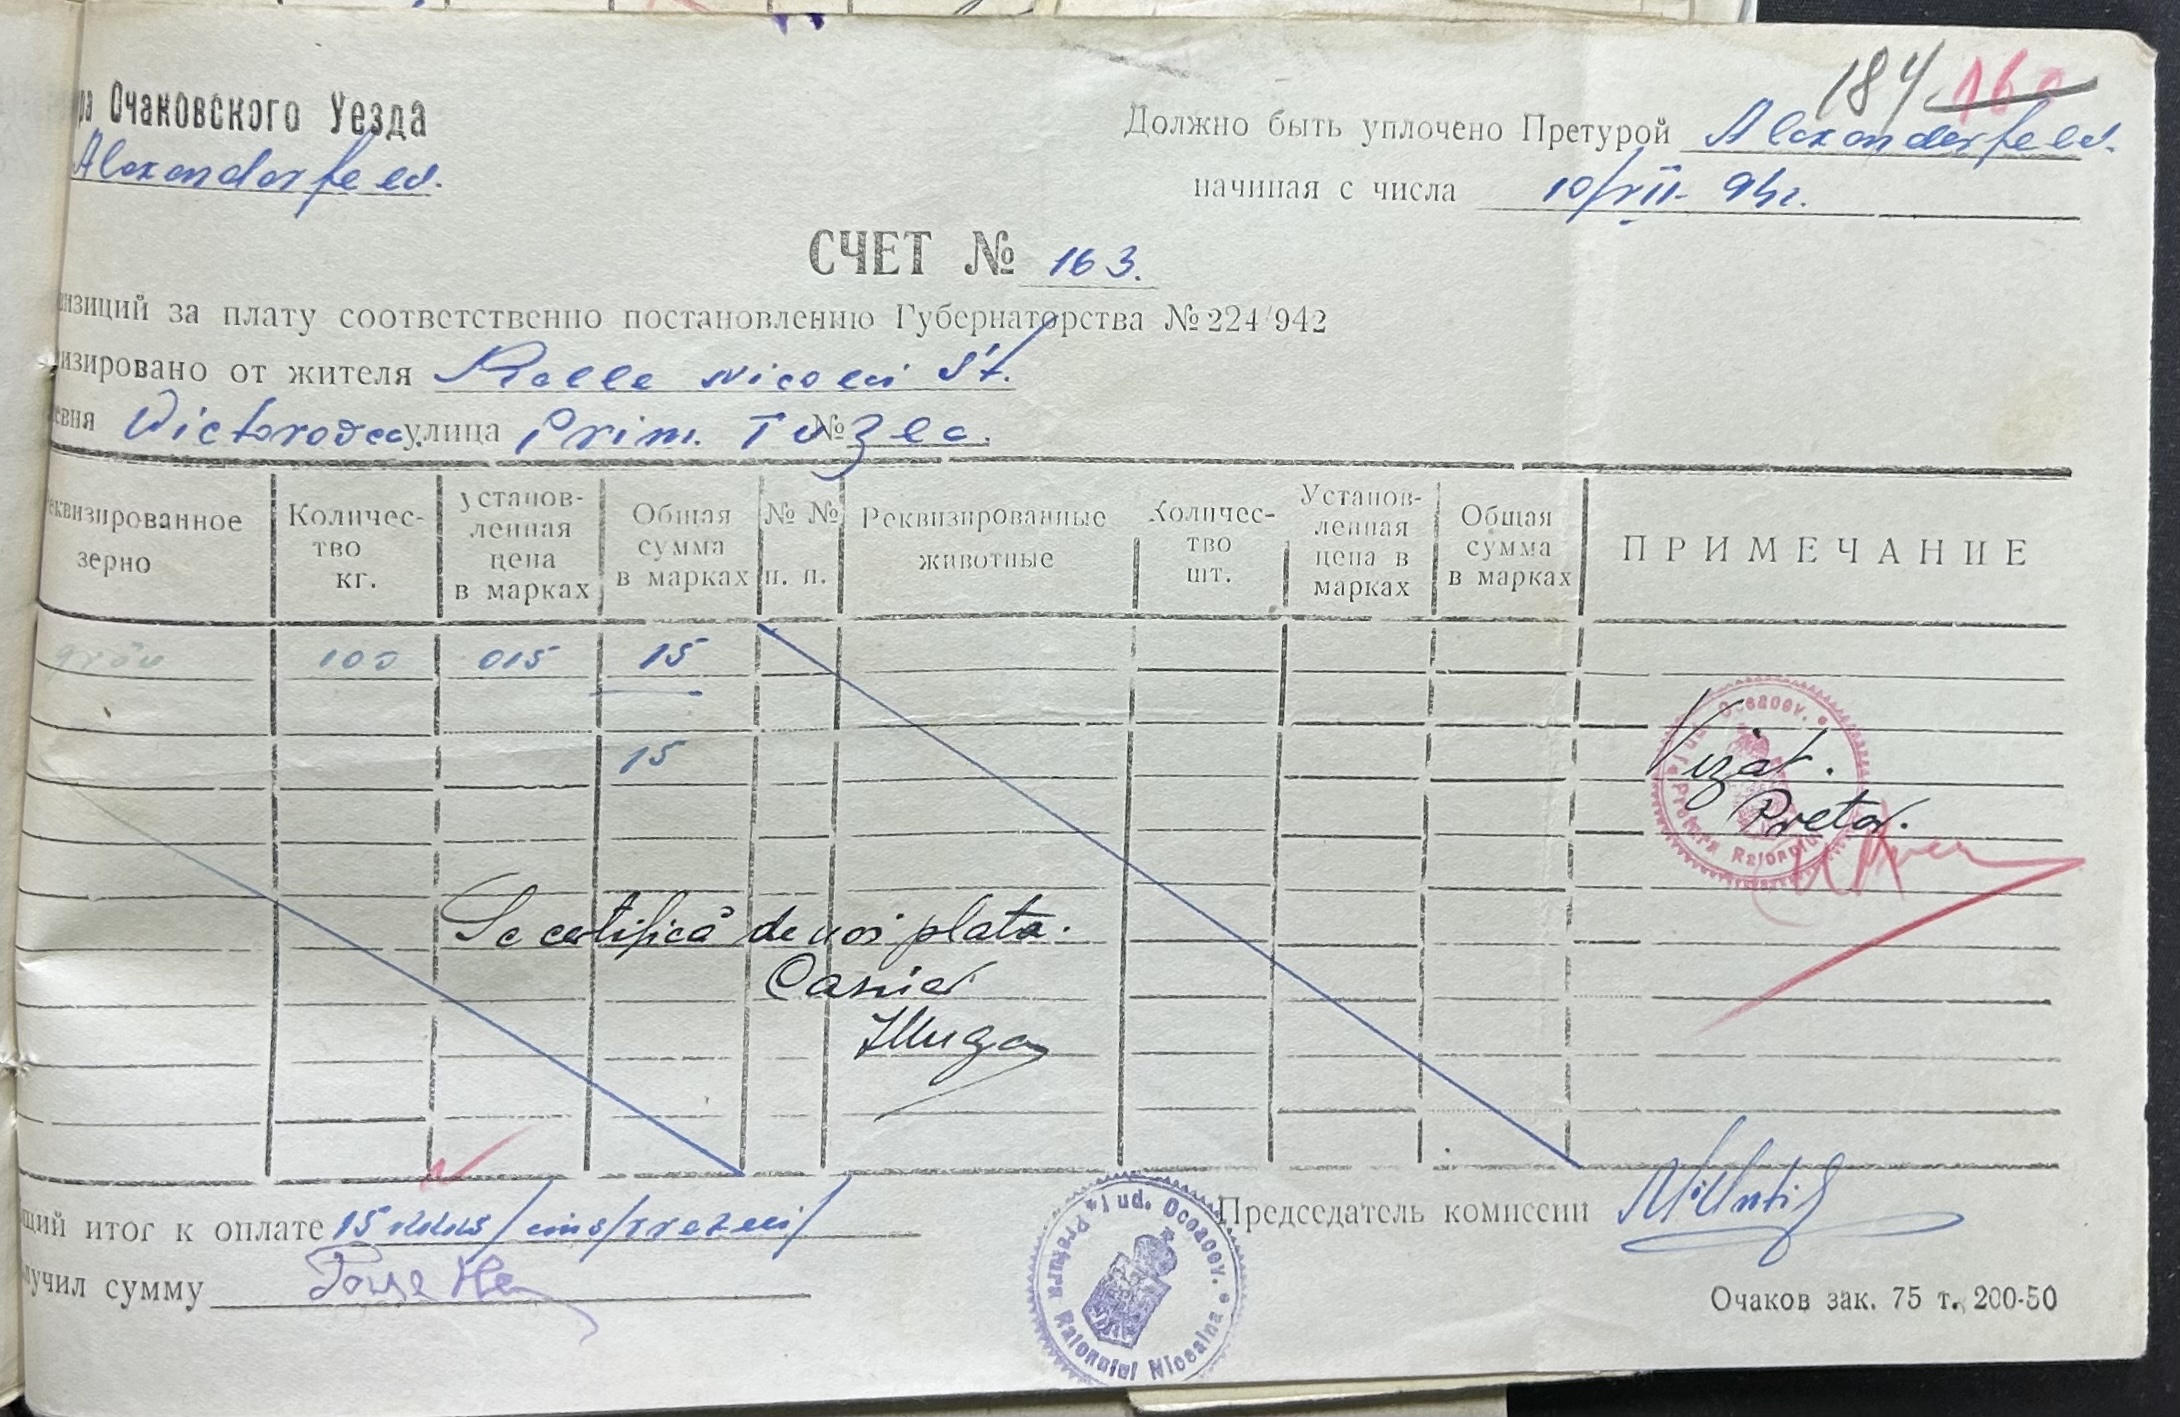 184 16
ра Очаковского Уезда
Alexandorfeld.
Должно быть уплочено Претурой Alexandorfeld.
начиная с числа 10/VII- 94г.
СЧЕТ № 163.
изиций за плату соответственно постановлению Губернаторства № 224/942
изировано от жителя Nicolai St.
евня Victorovca улица Prim. Tuzla. №
еквизированное зерно
Количество кг.
установленная цена в марках
Общая сумма в марках
№ № п. п.
Реквизированные животные
Количество шт.
Установленная цена в марках
Общая сумма в марках
ПРИМЕЧАНИЕ
grâu 100 015 15
15
Vizat.
Pretor.
Pretura Raionului Jud. Oceacov.
Se certifică de noi plata.
Casier
щий итог к оплате 15 /cinsprezeci/
лучил сумму
Председатель комиссии
Pretura Raionului Nicsaina Jud. Oceacov.
Очаков зак. 75 т. 200-50